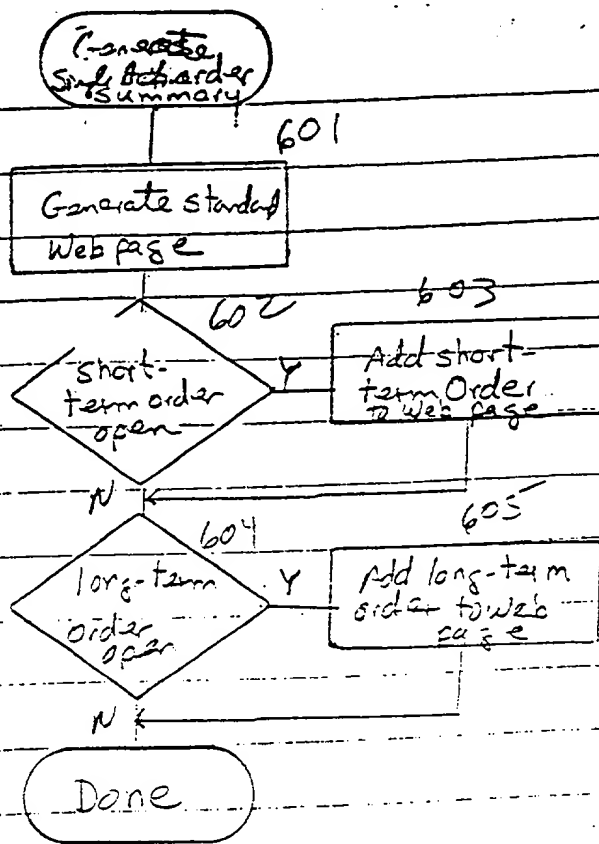 Generate
Single Action order
summary
601
Generate standard
Web page
602
short-
term order
open
Y
603
Add short-
term Order
to Web page
N
604
long-term
order
open
Y
605
Add long-term
order to Web
page
N
Done